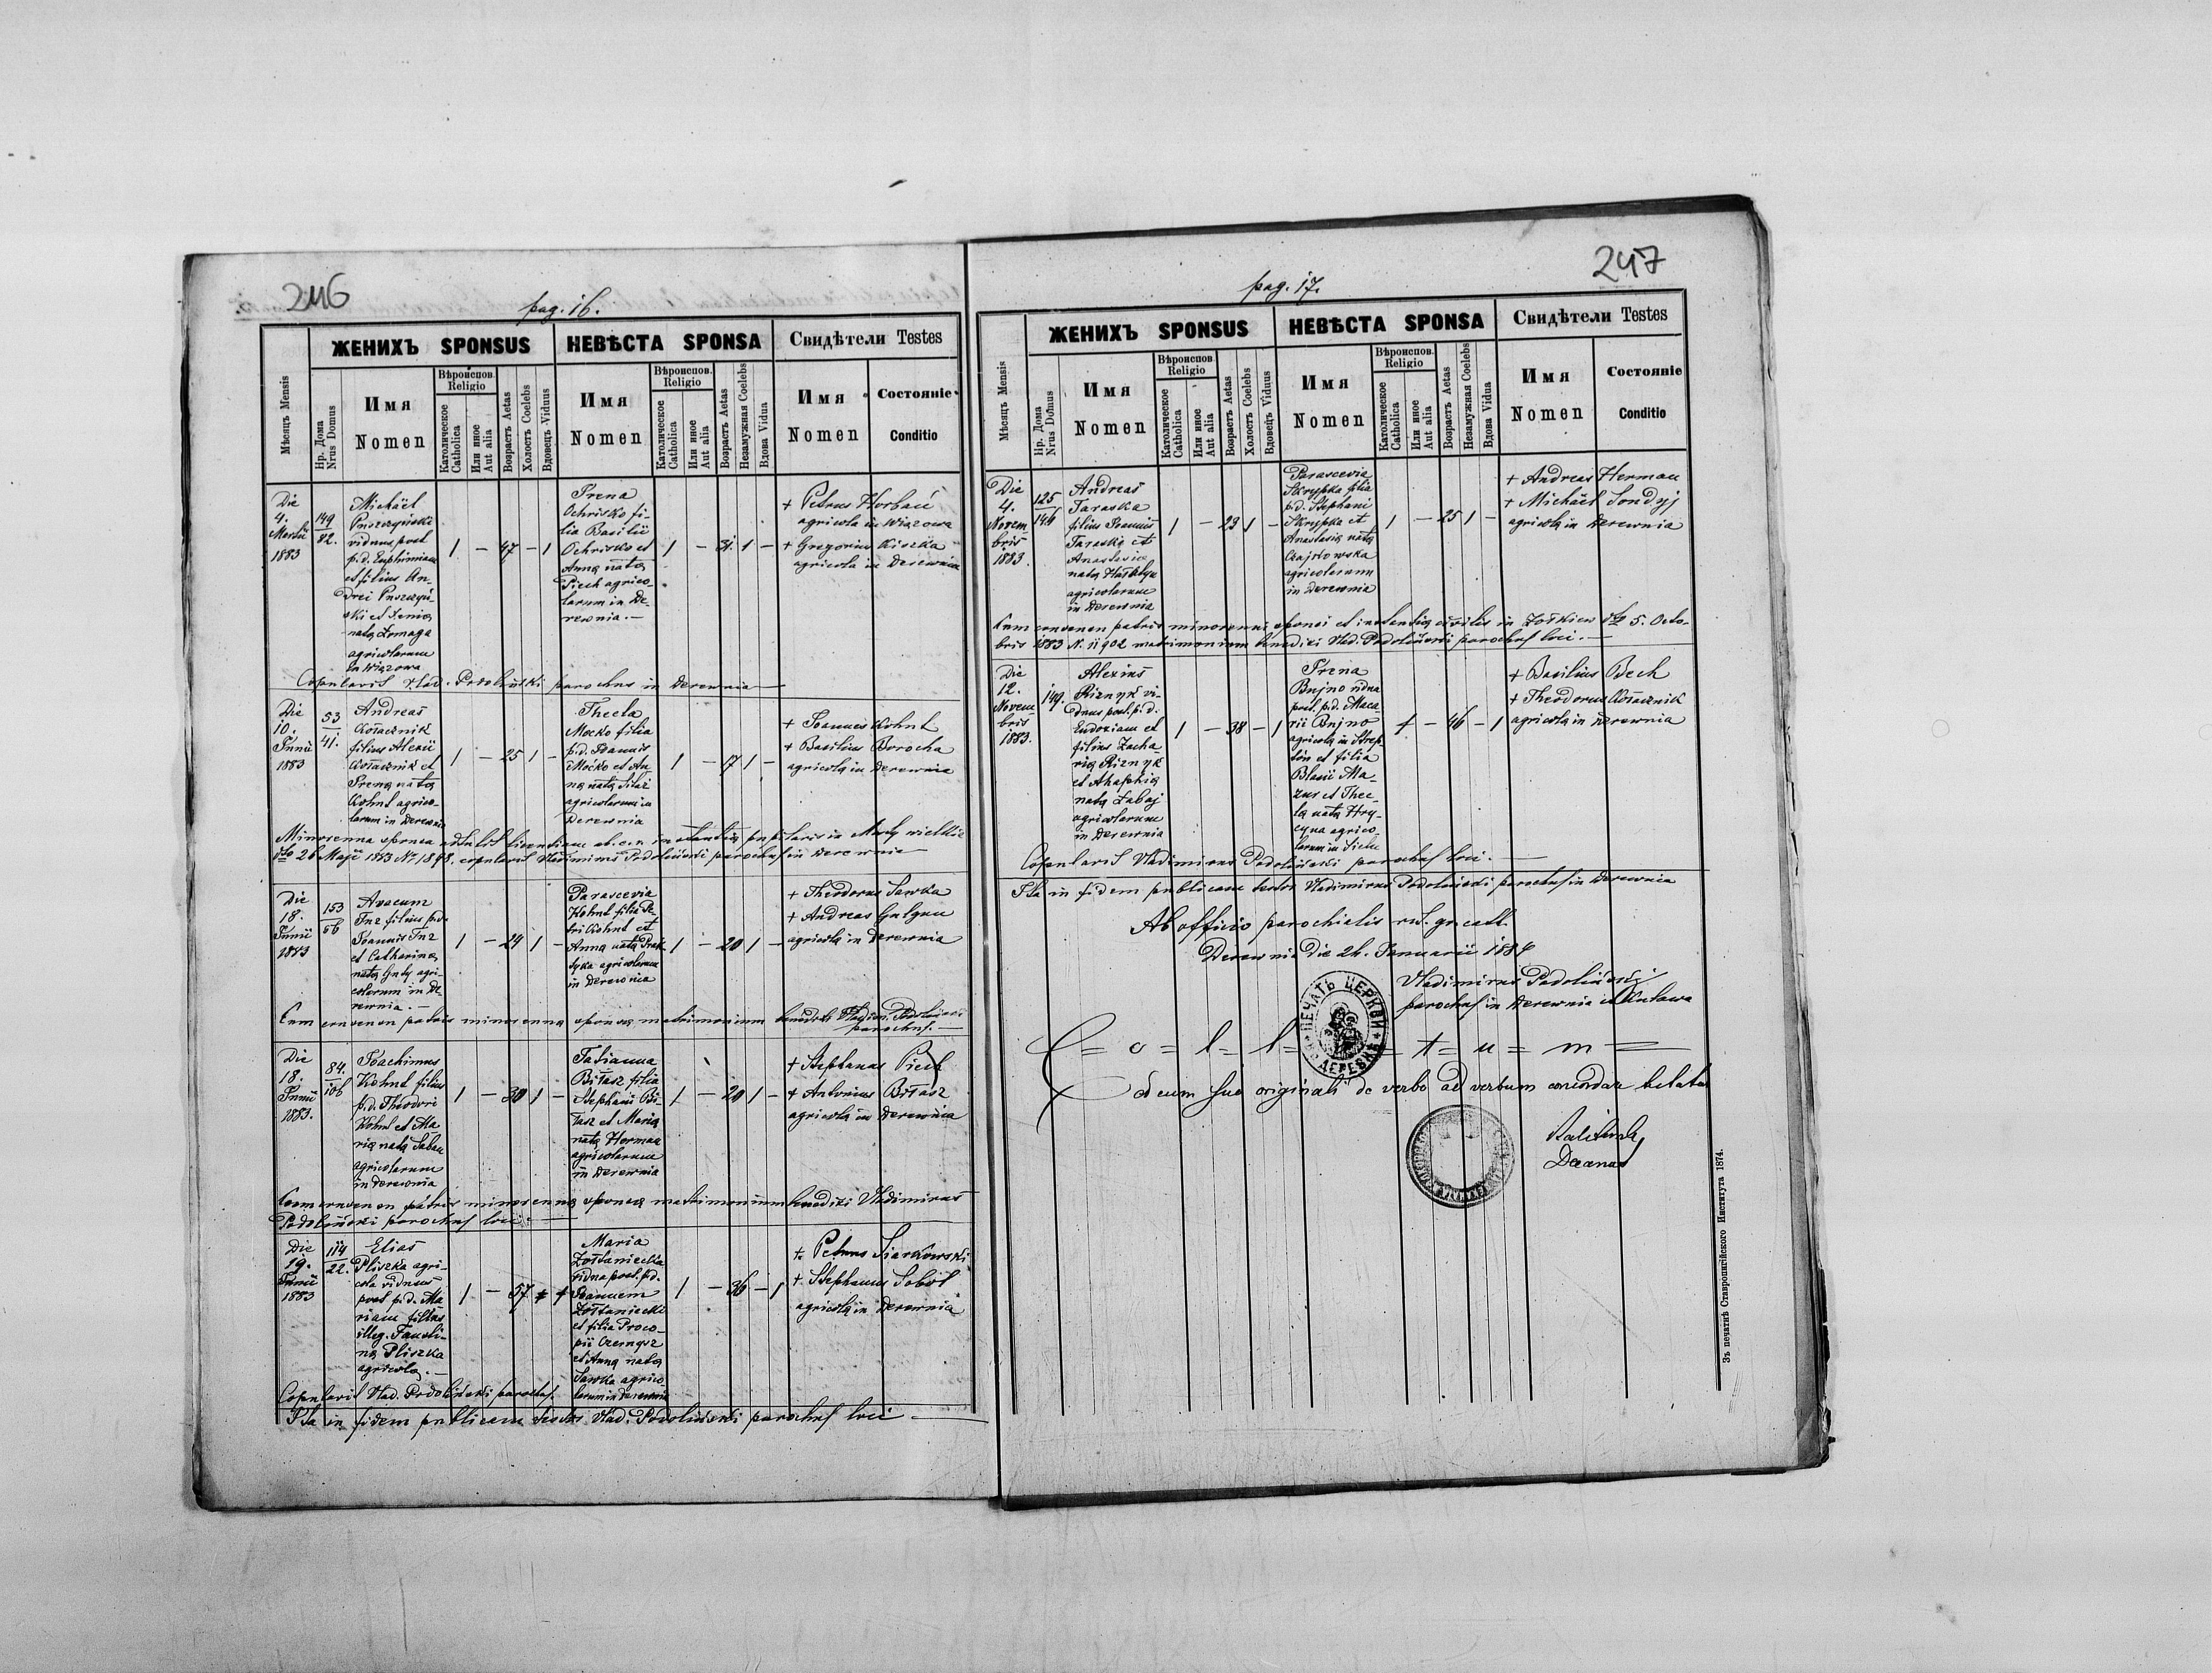 246
pag. 16.
ЖЕНИХЪ SPONSUS
НЕВѢСТА SPONSA
Свидѣтели Testes
Мѣсяцъ Mensis
Нр. Дома
Nrus Domus
Имя
Nomen
Вѣроиспов.
Religio
Католическое
Catholica
Или иное
Aut alia
Возрастъ Aetas
Холостъ Coelebs
Вдовецъ Viduus
Имя
Nomen
Вѣроиспов.
Religio
Католическое
Catholica
Или иное
Aut alia
Возрастъ Aetas
Незамужная Coelebs
Вдова Vidua
Имя
Nomen
Состояніе
Conditio
Die
4.
Martii
1883
149
82.
Michaël
viduus post
p.d. Euphimiam
et filius An-
drei
ski et Xenia
nata
agricolarum
in Wiązowa
1 - 47 - 1
Irena
Ochrisko fi-
lia Basilii
Ochrisko et
Anna nata
Piech agrico-
larum in De-
rewnia.-
1 - 31. 1 -
+ Petrus Horbań
agricola in Wiązowa
+ Gregorius Kiszka
agricola in Derewnia
Copulavit Vlad. Podoliński parochus in Derewnia
Die
10.
Junii
1883
53
41.
Andreas
Kołacznik
filius Alexii
Kołacznik et
Irena nata
Kohut agrico-
larum in Derewnia
1 - 25 1 -
Thecla
Mocko filia
p.d. Joannis
Mocko et An-
na nata
agricolarum in
Derewnia
1 - 17 1 -
+ Joannes Kohut
+ Basilius Borocha
agricola in Derewnia
Minorenna sponsa attulit licentiam ab instantia pupilaris in Mosty wielkie
dto 26 Maji 1883 Nr. 1898. copulavit Vladimirus Podoliński parochus in Derewnia
Die
18.
Junii
1883
153
66
Avacum
Tuz filius p.d.
Joannis Tuz
et Catharina
nata Gudz agri-
colarum in De-
rewnia.-
1 - 24 1 -
Parascevia
Kohut filia Pe-
tri Kohut et
Anna nata
agricolarum
in Derewnia
1 - 20 1 -
+ Theodorus Sawka
+ Andreas Galgan
agricola in Derewnia
Cum consensu patris minorenna sponsa matrimonium benedixi Vladim. Podoliński
parochus.-
Die
18.
Junii
1883.
84.
106
Joachimus
Kohut filius
p.d. Theodori
Kohut et Ma-
ria nata Saban
agricolarum
in Derewnia
1 - 30 1 -
Tatianna
Biłasz filia
Stephani Bi-
łasz et Maria
nata Herman
agricolarum
in Derewnia
1 - 20 1 -
+ Stephanus Piech
+ Antonius Biłasz
agricola in Derewnia
Cum consensu patris minorenna sponsa matrimonium benedixi Vladimirus
Podoliński parochus loci.-
Die
19.
Junii
1883
114
22.
Elias
Pliszka agri-
cola viduus
post p.d. Ma-
riam filius
illeg. Fausti-
na Pliszka
agricola.-
1 - 57 - 1
Maria
Żołtaniecka
vidua post p.d.
Joannem
Żołtaniecki
et filia Proco-
pii Czernysz
et Anna nata
Sawka agrico-
larum in Derewnia
1 - 36 - 1
+ Petrus Siarkowski
+ Stephanus Soboł
agricola in Derewnia
Copulavit Vlad. Podoliński parochus.
Ita in fidem publicam testor Vlad. Podoliński parochus loci
247
pag. 17.
ЖЕНИХЪ SPONSUS
НЕВѢСТА SPONSA
Свидѣтели Testes
Мѣсяцъ Mensis
Нр. Дома
Nrus Domus
Имя
Nomen
Вѣроиспов.
Religio
Католическое
Catholica
Или иное
Aut alia
Возрастъ Aetas
Холостъ Coelebs
Вдовецъ Viduus
Имя
Nomen
Вѣроиспов.
Religio
Католическое
Catholica
Или иное
Aut alia
Возрастъ Aetas
Незамужная Coelebs
Вдова Vidua
Имя
Nomen
Состояніе
Conditio
Die
4.
Novem
bris
1883.
125
146
Andreas
Taraska
filius Joannis
Taraska et
Anastasia
nata
agricolarum
in Derewnia
1 - 23 1 -
Parascevia
Skrypka filia
p.d. Stephani
Skrypka et
Anastasia nata
Czajkowska
agricolarum
in Derewnia
1 - 25 1 -
+ Andreas Herman
+ Michaël Sondyj
agricola in Derewnia
Cum consensu patris minorenni sponsi et instantia civilis in Żołkiew dto 5. Octo-
bris 1883 N. 11902 matrimonium benedixi Vlad. Podoliński parochus loci.-
Die
12.
Novem
bris
1883.
149.
Alexius
Riznyk vi-
duus post p.d.
Eudoxiam et
filius Zacha-
ria Riznyk
et Ahafkia
nata Łabaj
agricolarum
in Derewnia
1 - 38 - 1
Irena
Bujno vidua
post p.d. Maca-
rii Bujno
agricola in Strep-
tów et filia
Blasii Ma-
zur et Thec-
la nata Hry-
cyna agrico-
larum in
1 - 46 - 1
+ Basilius Bech
+ Theodorus Kołacznik
agricola in Derewnia
Copulavit Vladimirus Podoliński parochus loci.-
Ita in fidem publicam testor Vladimirus Podoliński parochus in Derewnia
Ab officio parochialis rit. gr. cath.
Derewnia die 24. Januarii 1884
Vladimirus Podoliński
parochus in Derewnia et Kuława
ПЕЧАТЬ ЦЕРКВИ ДЕРЕВНѢ
C = o = l = l = = t = u = m =
cum suo originali de verbo ad verbum
Decanus
Зъ печатнѣ Ставропигійского Института 1874.